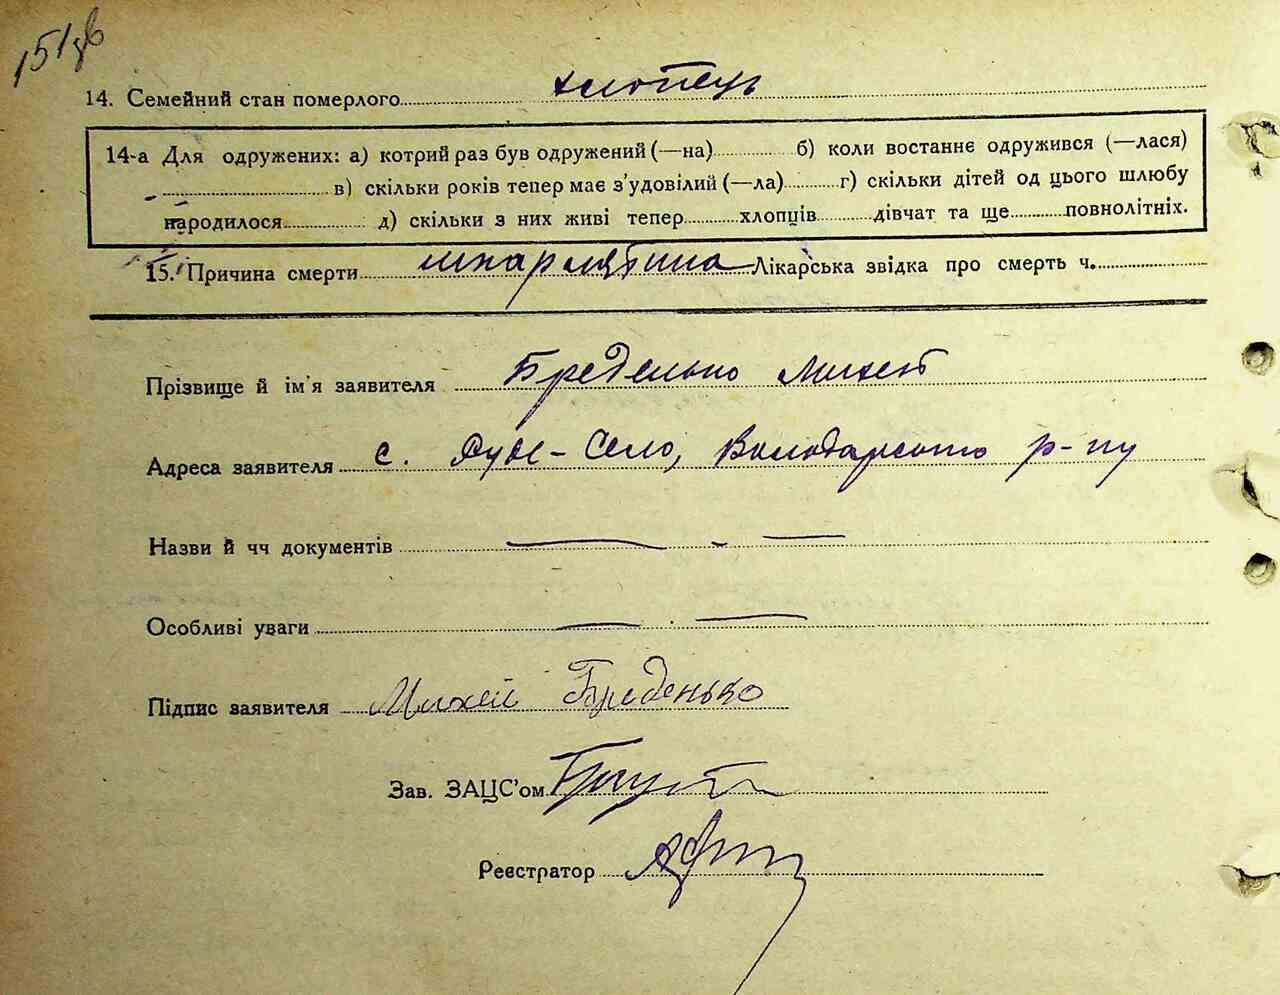 151зв
14. Семейний стан померлого хлопець
14-а Для одружених: а) котрий раз був одружений (—на) б) коли востаннє одружився (—лася)
в) скільки років тепер має з'удовілий (—ла) г) скільки дітей од цього шлюбу
народилося д) скільки з них живі тепер хлопців дівчат та ще повнолітніх.
15. Причина смерти шкарлятина Лікарська звідка про смерть ч.
Прізвище й ім'я заявителя Бределько Михей
Адреса заявителя с. Руде-Село, Володарського р-ну
Назви й чч документів
Особливі уваги
Підпис заявителя Михей Бределько
Зав. ЗАЦС'ом
Реєстратор